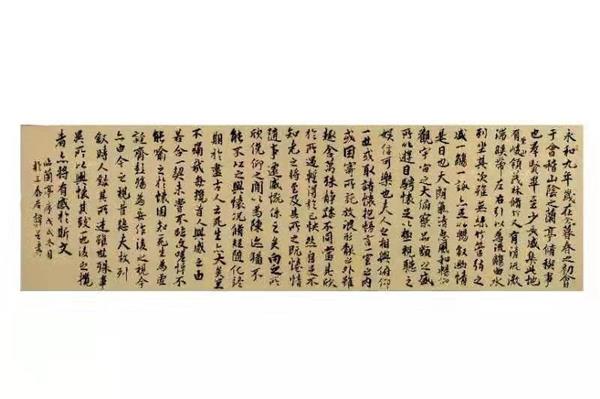 永和九年歲在癸暮春之初會
于會稽山陰之蘭亭脩稧事
也群賢畢至少長咸集此地
有峻領茂林脩竹又有清流激
湍暎帶左右引以為流觴曲水
列坐其次雖無絲竹管弦之
盛一觴一詠亦足以暢敘幽情
是日也天朗氣清惠風和暢仰
觀宇宙之大俯察品類之盛
所以遊目騁懷足以極視聽之
娛信可樂也夫人之相與俯仰
一世或取諸懷抱悟言一室之內
或因寄所託放浪形骸之外雖
趣舍萬殊靜躁不同當其欣
於所遇暫得於己快然自足不
知老之將至及其所之既惓情
隨事遷感慨係之矣向之所
欣俛仰之間以為陳迹猶不
能不以之興懷況脩短隨化終
期於盡古人云死生亦大矣豈
不痛哉每攬昔人興感之由
若合一契未嘗不臨文嗟悼不
能喻之於懷固知死生為虛
誕齊彭殤為妄作後之視今
亦由今之視昔悲夫故列
敘時人錄其所述雖世殊事
異所以興懷其致一也後之攬
者亦將有感於斯文
臨蘭亭序戊戌冬月
於